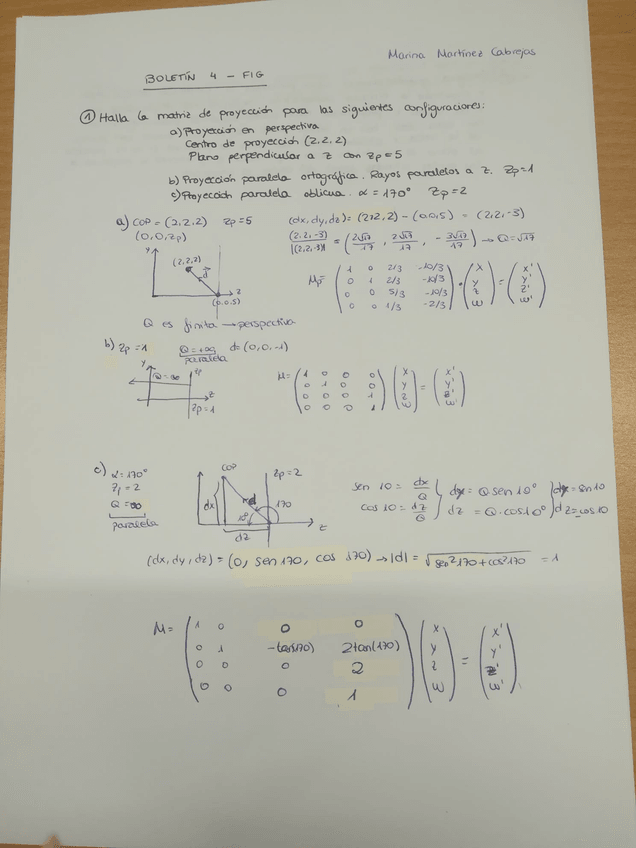 Marina Martínez Cabrejas
BOLETÍN 4 - FIG
① Halla la matriz de proyección para las siguientes configuraciones:
a) Proyección en perspectiva
Centro de proyección (2,2,2)
Plano perpendicular a z con Zp=5
b) Proyección paralela ortográfica. Rayos paralelos a z. Zp=1
c) Proyección paralela oblicua. α=170° Zp=2
a) COP = (2,2,2) Zp=5 (dx,dy,dz) = (2,2,2) - (0,0,5) = (2,2,-3)
(0,0,Zp) (2,2,-3) / |(2,2,-3)| = (2√17/17, 2√17/17, -3√17/17) → Q=√17
y
(2,2,2)
d
z
(0,0,5)
Mp = ( 1 0 2/3 -10/3 ) • ( x ) = ( x' )
0 1 2/3 -10/3 y y'
0 0 5/3 -10/3 z z'
0 0 1/3 -2/3 w w'
Q es finita → perspectiva
b) Zp=1 Q=+∞ d=(0,0,-1)
paralela
y
Q=∞ Zp
z
Zp=1
M = ( 1 0 0 0 ) ( x ) = ( x' )
0 1 0 0 y y'
0 0 0 1 z z'
0 0 0 1 w w'
c) α=170°
Zp=2
Q=∞
paralela
COP Zp=2
dx d 170
10°
dz z
sen 10 = dx/Q } dx = Q sen 10° } dx = sen 10
cos 10 = dz/Q } dz = Q·cos 10° } dz = cos 10
(dx,dy,dz) = (0, sen 170, cos 170) → |d| = √sen²170+cos²170 = 1
M = ( 1 0 0 0 ) ( x ) = ( x' )
0 1 -tan(170) 2tan(170) y y'
0 0 0 2 z z'
0 0 0 1 w w'